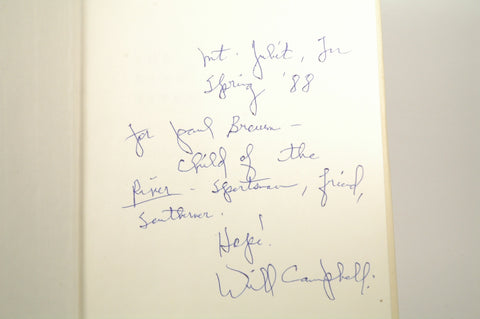 Mt. Juliet, Tn
Spring '88
for Paul Brown -
Child of the
River - Sportsman, friend,
Southerner.
Hope!
Will Campbell.